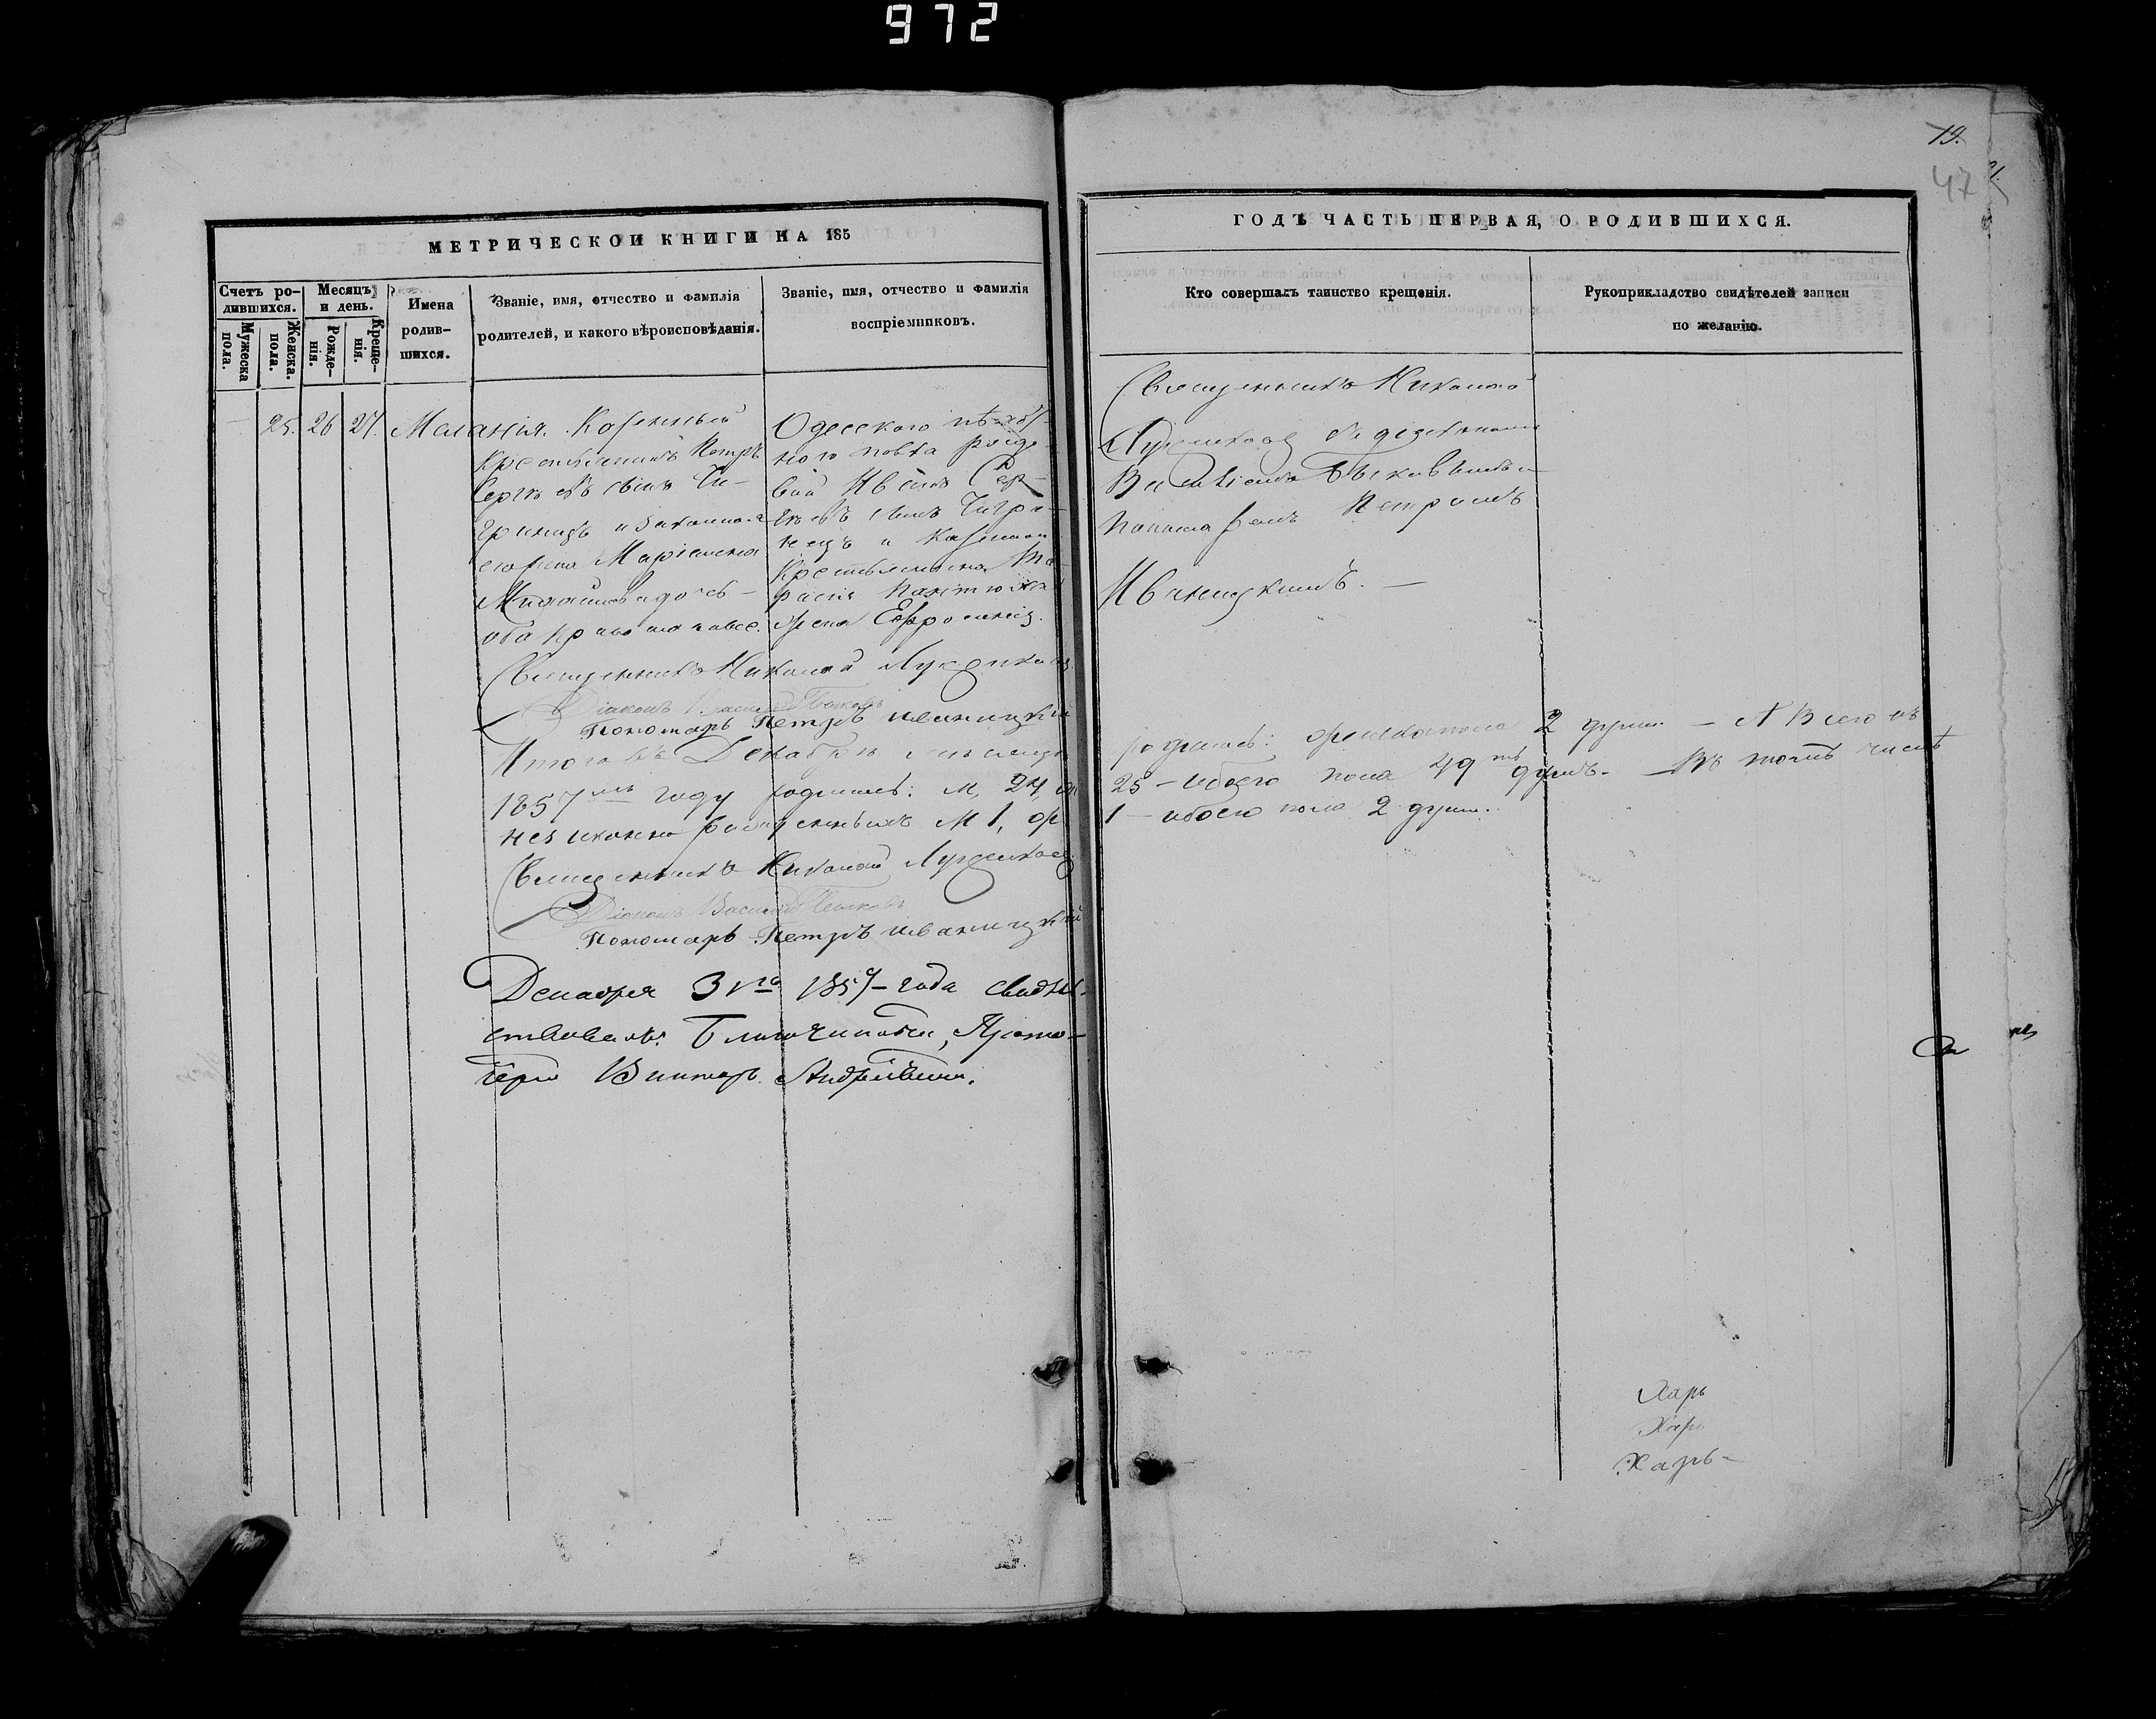 972
19.
47
МЕТРИЧЕСКОЙ КНИГИ НА 185
Счетъ ро-
дившихся.
Мужеска
пола.
Женска.
пола.
Месяцъ
и день.
Рожде-
нія.
Креще-
нія.
Имена
родив-
шихся.
Званіе, имя, отчество и фамилія
родителей, и какого вѣроисповѣданія.
Званіе, имя, отчество и фамилія
воспріемниковъ.
25. 26 27. Меланія.
Казенный
крестьянинъ Петръ
Сергѣевъ сынъ Чи-
гринецъ и законная
его жена Маріамна
оба православ.
Одесского
ного полка рядо-
вой Иванъ Сер-
гѣевъ сынъ Чигри-
нецъ и казенная
крестьянина Та-
расія
жена Евфросинія.
Священникъ Николай
Діаконъ Василій
Пономарь Петръ Иваницкій
Итого въ Декабрѣ мѣсяцѣ
1857мъ году родилось: м, 24, ж
незаконно рожденныхъ м 1, ж
Священникъ Николай
Діаконъ Василій
Пономарь Петръ Иваницкій
Декабря 31го 1857 года свидѣтель-
ствовалъ: Благочинный, Прото-
іерей Викторъ
ГОДЪ ЧАСТЬ ПЕРВАЯ, О РОДИВШИХСЯ.
Кто совершалъ таинство крещенія.
Рукоприкладство свидѣтелей записи
по желанію.
Священникъ Николай
съ діакономъ
Василіемъ
пономаремъ Петромъ
Иваницкимъ. —
родилось: женска пола 2 души. — А всего въ
25 — обоего пола 49ть душъ. — Въ томъ числѣ
1 — обоего пола 2 души.
Харь
Харь
Харь-